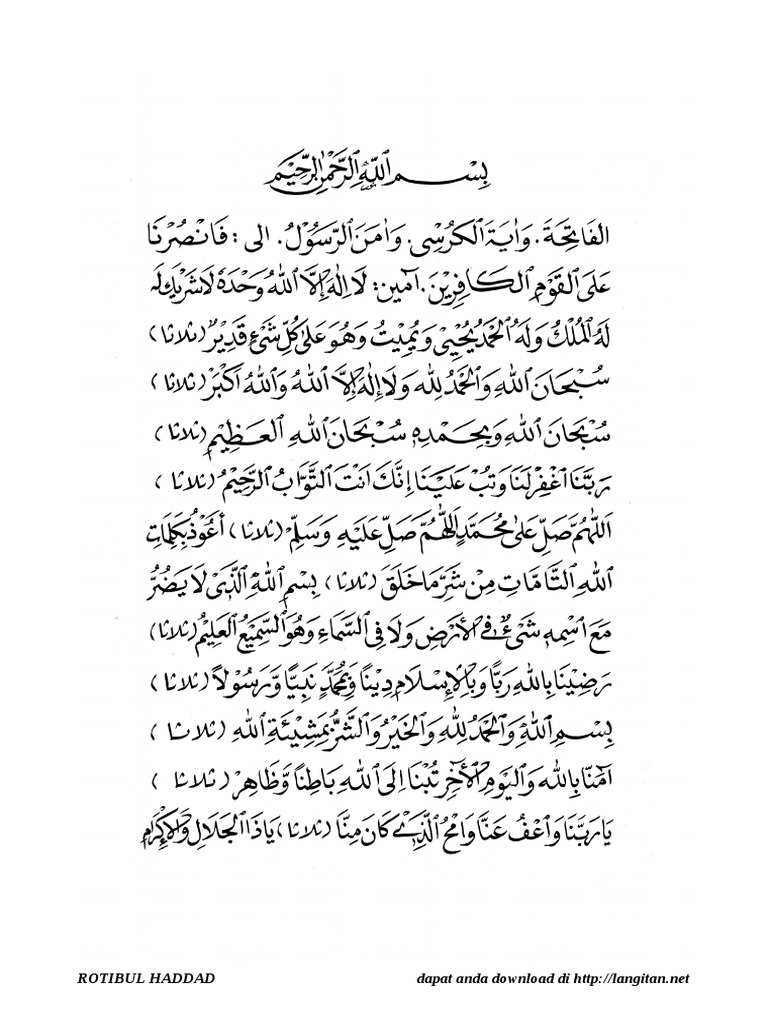 بِسْــمِ اللّٰهِ الرَّحْمٰنِ الرَّحِيْمِ
الفَاتِحَةَ. وَاٰيَةَ الْكُرْسِى. وَاٰمَنَ الرَّسُوْلُ. الى : فَانْصُرْنَا
عَلَى الْقَوْمِ الْكَافِرِيْنَ. آمين: لَا اِلٰهَ اِلَّا اللّٰهُ وَحْدَهٗ لَا شَرِيْكَ لَهٗ
لَهُ الْمُلْكُ وَلَهُ الْحَمْدُ يُحْيِيْ وَيُمِيْتُ وَهُوَ عَلٰى كُلِّ شَيْءٍ قَدِيْرٌ (ثلاثا)
سُبْحَانَ اللّٰهِ وَالْحَمْدُ لِلّٰهِ وَلَا اِلٰهَ اِلَّا اللّٰهُ وَاللّٰهُ اَكْبَرُ (ثلاثا)
سُبْحَانَ اللّٰهِ وَبِحَمْدِهٖ سُبْحَانَ اللّٰهِ الْعَظِيْمِ (ثلاثا)
رَبَّنَا اغْفِرْ لَنَا وَتُبْ عَلَيْنَا اِنَّكَ اَنْتَ التَّوَّابُ الرَّحِيْمُ (ثلاثا)
اَللّٰهُمَّ صَلِّ عَلٰى مُحَمَّدٍ اَللّٰهُمَّ صَلِّ عَلَيْهِ وَسَلِّمْ (ثلاثا) أَعُوْذُ بِكَلِمَاتِ
اللّٰهِ التَّامَّاتِ مِنْ شَرِّ مَا خَلَقَ (ثلاثا) بِسْمِ اللّٰهِ الَّذِىْ لَا يَضُرُّ
مَعَ اسْمِهٖ شَيْءٌ فِى الْاَرْضِ وَلَا فِى السَّمَاءِ وَهُوَ السَّمِيْعُ الْعَلِيْمُ (ثلاثا)
رَضِيْنَا بِاللّٰهِ رَبًّا وَبِالْاِسْلَامِ دِيْنًا وَبِمُحَمَّدٍ نَبِيًّا وَّرَسُوْلًا (ثلاثا)
بِسْمِ اللّٰهِ وَالْحَمْدُ لِلّٰهِ وَالْخَيْرُ وَالشَّرُّ بِمَشِيْئَةِ اللّٰهِ (ثلاثا)
اٰمَنَّا بِاللّٰهِ وَالْيَوْمِ الْاٰخِرِ تُبْنَا اِلَى اللّٰهِ بَاطِنًا وَّظَاهِرْ (ثلاثا)
يَا رَبَّنَا وَاعْفُ عَنَّا وَامْحُ الَّذِيْ كَانَ مِنَّا (ثلاثا) يَاذَا الْجَلَالِ وَالْاِكْرَامِ
ROTIBUL HADDAD dapat anda download di http://langitan.net